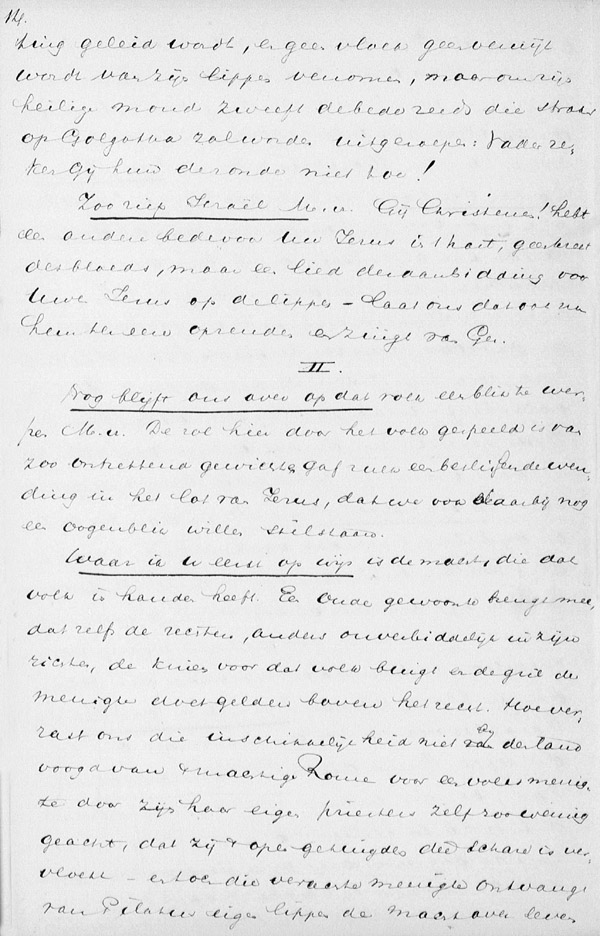 14.
ting geleid wordt, er geen vloek geen verwijt
wordt van zijn lippen vernomen, maar om zijn
heilige mond zweeft de bede reeds die straks
op Golgotha zal worden uitgeroepen: Vader re-
ken Gij hun de zonde niet toe!
Zoo riep Israël M.v. Gij Christenen! hebt
een andere bede voor Uw Jezus in 't hart, geen kreet
des bloeds, maar een lied der aanbidding voor
Uwe Jezus op de lippen – laat ons dat ook nu
hem ter eere opzenden en zingt van Gez.
II.
Nog blijft ons over op dat volk een blik te wer-
pen M.v. De rol hier door het volk gespeeld is van
zoo ontzettend gewicht, gaf zulk een beslissende wen-
ding in het lot van Jezus, dat we ook daarbij nog
een oogenblik willen stilstaan.
Waar ik u eerst op wijs is de macht, die dat
volk in handen heeft. Een oude gewoonte brengt mee,
dat zelfs de rechter, anders onverbiddelijk in zijn
richten, de knieën voor dat volk buigt en de gril der
menigte doet gelden boven het recht. Hoe ver-
rast ons die inschikkelijkheid niet bij den land
voogd van 't machtige Rome voor een volksmenig-
te door zijn haar eigen priesters zelf zoo weinig
geacht, dat zij 't open getuigden deze schare is ver-
vloekt – en toch die verachte menigte ontvangt
van Pilatus eigen lippen de macht over leven